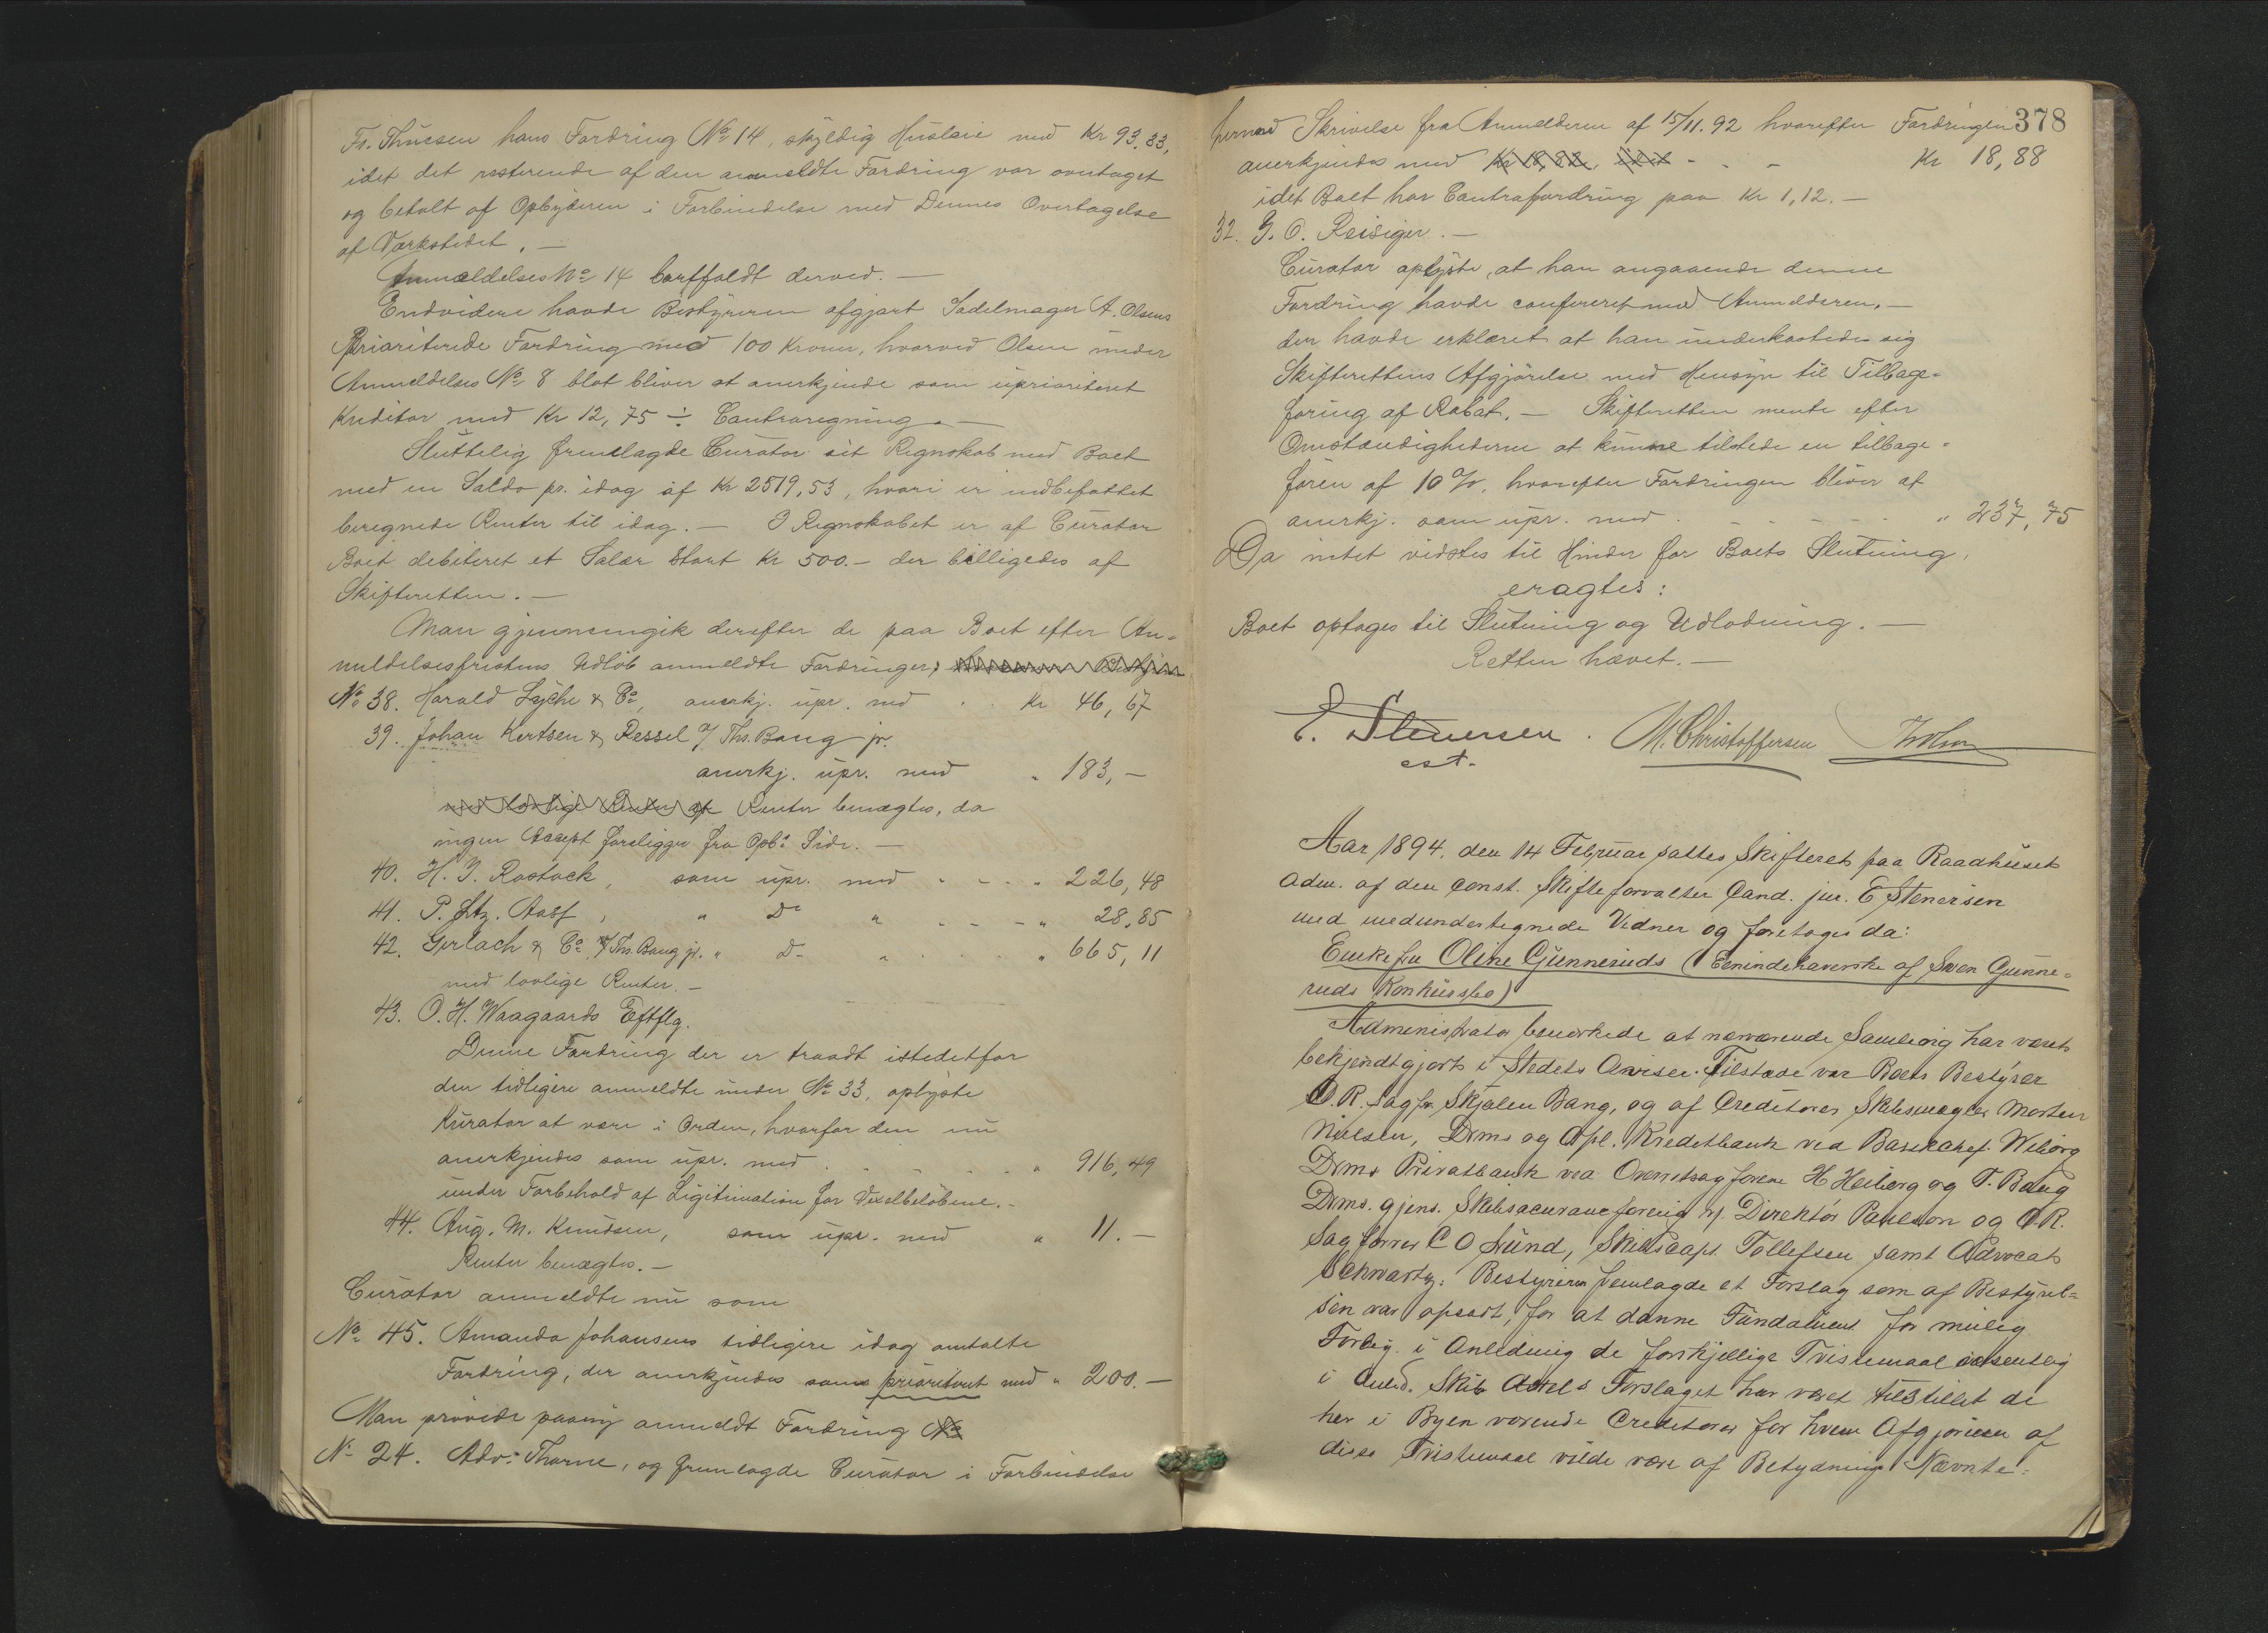 Fr. Thuesen hans Fordring No 14, skyldig Husleie med Kr 93.33,
idet det resterende af den anmeldte Fordring var overtaget
og betalt af Opbyderen i Forbindelse med Dennes Overtagelse
af Værkstedet. —
Anmældelses No 14 bortfaldt derved. —
Endvidere havde Bestyreren afgjort Sadelmager A. Olsens
Prioriterede Fordring med 100 Kroner, hvorved Olsen under
Anmeldelses No 8 blot bliver at anerkjende som uprioriteret
Kreditor med Kr 12,75 ÷ Contraregning. —
Sluttelig fremlagde Curator sit Regnskab med Boet
med en Saldo pr. idag af Kr 2519,53, hvori er indbefattet
beregnede Renter til idag. — I Regnskabet er af Curator
Boet debiteret et Salær stort Kr 500.— der billigedes af
Skifteretten. —
Man gjennemgik derefter de paa Boet efter An-
meldelsesfristens Udløb anmeldte Fordringer,
No 38. Harald Lyche & Co, anerkj. upr. med . . Kr 46,67
39. Johan Kertsen & Ressel v/ Ths. Bang jr.
anerkj. upr. med " 183,—
med lovlige Renter af Renter benægtes, da
ingen Accept foreligger fra Opbs Side. —
40. H. J. Rostock, som upr. med " . . " 226,48
41. P. Ltz. Aass, " Do " . . — " 28,85
42. Gerlach & Co v/ Ths. Bang jr. " Do " . . . " 665,11
med lovlige Renter. —
43. O. H. Waagaards Eftflg.
Denne Fordring der er traadt istedetfor
den tidligere anmeldte under No 33, oplyste
Kurator at være i Orden, hvorfor den nu
anerkjendes som upr. med . . . . . " 916,49
under Forbehold af Legitimation for Vexelbeløbene. —
44. Aug. M. Knudsen, som upr. med " 11.—
Renter benægtes. —
Curator anmeldte nu som
No 45. Amanda Johansens tidligere idag omtalte
Fordring, der anerkjendes som prioriteret med " 200.—
Man prøvede paany anmeldt Fordring No
No 24. Adv. Thorne, og fremlagde Curator i Forbindelse
378
hermed Skrivelse fra Anmelderen af 15/11.92 hvorefter Fordringen
anerkjendes med Kr 18,88, idet - . - Kr 18,88
idet Boet har Contrafordring paa Kr 1,12. —
32. G. O. Reisiger. —
Curator oplyste, at han angaaende denne
Fordring havde confereret med Anmelderen, —
der havde erklæret at han underkastede sig
Skifterettens Afgjørelse med Hensyn til Tilbage-
føring af Rabat. — Skifteretten mente efter
Omstændighederne at kunne tilstede en tilbage-
føren af 10 %, hvorefter Fordringen bliver at
anerkj. som upr. med . . . . . " 237,75
Da intet vidstes til Hinder for Boets Slutning,
eragtes:
Boet optages til Slutning og Udlodning. —
Retten hævet. —
E. Stenersen . M. Christoffersen
cst.
Aar 1894, den 14 Februar sattes Skifteret paa Raadhuset
adm. af den const. Skifteforvalter Cand. jur. E Stenersen
med medundertegnede Vidner og foretoges da:
Enkefru Oline Gunneruds (Eenindehaverske af Swen Gunne-
ruds Konkursbo)
Administrator bemerkede at nærværende Samling har været
bekjendtgjort i Stedets Aviser. Tilstæde var Boets Bestyrer
O.R. Sagfr. Skjølen Bang, og af Creditorer Skibsmægler Morten
Nielsen, Drms og Opl. Kreditbank ved Bankchef Wiborg
Drms Privatbank ved Overretssagførerne H Heiberg og T. Bang
Drms. gjens. Skibsacuranceforenig v/ Direktør Paulson og O.R.
Sagfører C O Lund, Skibscapt. Tollefsen samt Advocat
Schwartz. Bestyreren fremlagde et Forslag som af Bestyrel-
sen var opsadt, for at danne Fundament for mulig
Forlig i Anledning de forskjellige Tvistemaal væsentlig
i Anled. Skib Forslaget har været tilstillet de
her i Byen værende Creditorer for hvem Afgjørelsen af
disse Tvistemaal vilde være af Betydning. Nævnte-